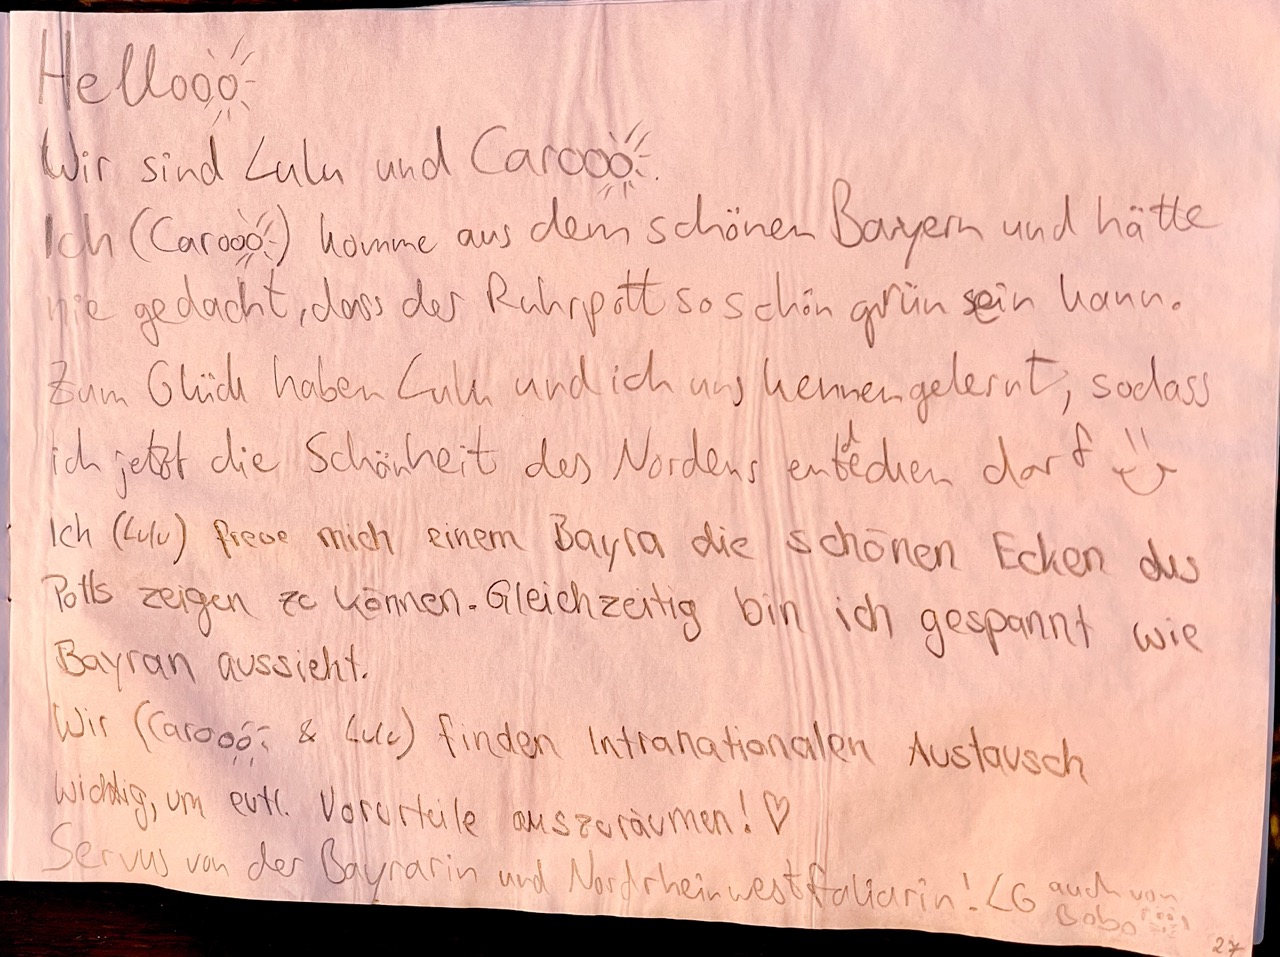 Hellooo
Wir sind Lulu und Carooo.
Ich (Carooo) komme aus dem schönen Bayern und hätte
nie gedacht, dass der Ruhrpott so schön grün sein kann.
Zum Glück haben Lulu und ich uns kennengelernt, sodass
ich jetzt die Schönheit des Nordens entdecken darf
Ich (Lulu) freue mich einem Bayra die schönen Ecken des
Potts zeigen zu können. Gleichzeitig bin ich gespannt wie
Bayran aussieht.
Wir (Carooo & Lulu) finden Intranationalen Austausch
wichtig, um evtl. Vorurteile auszuräumen! ♡
Servus von der Bayrarin und Nordrheinwestfaliarin! LG auch von
Bobo
27